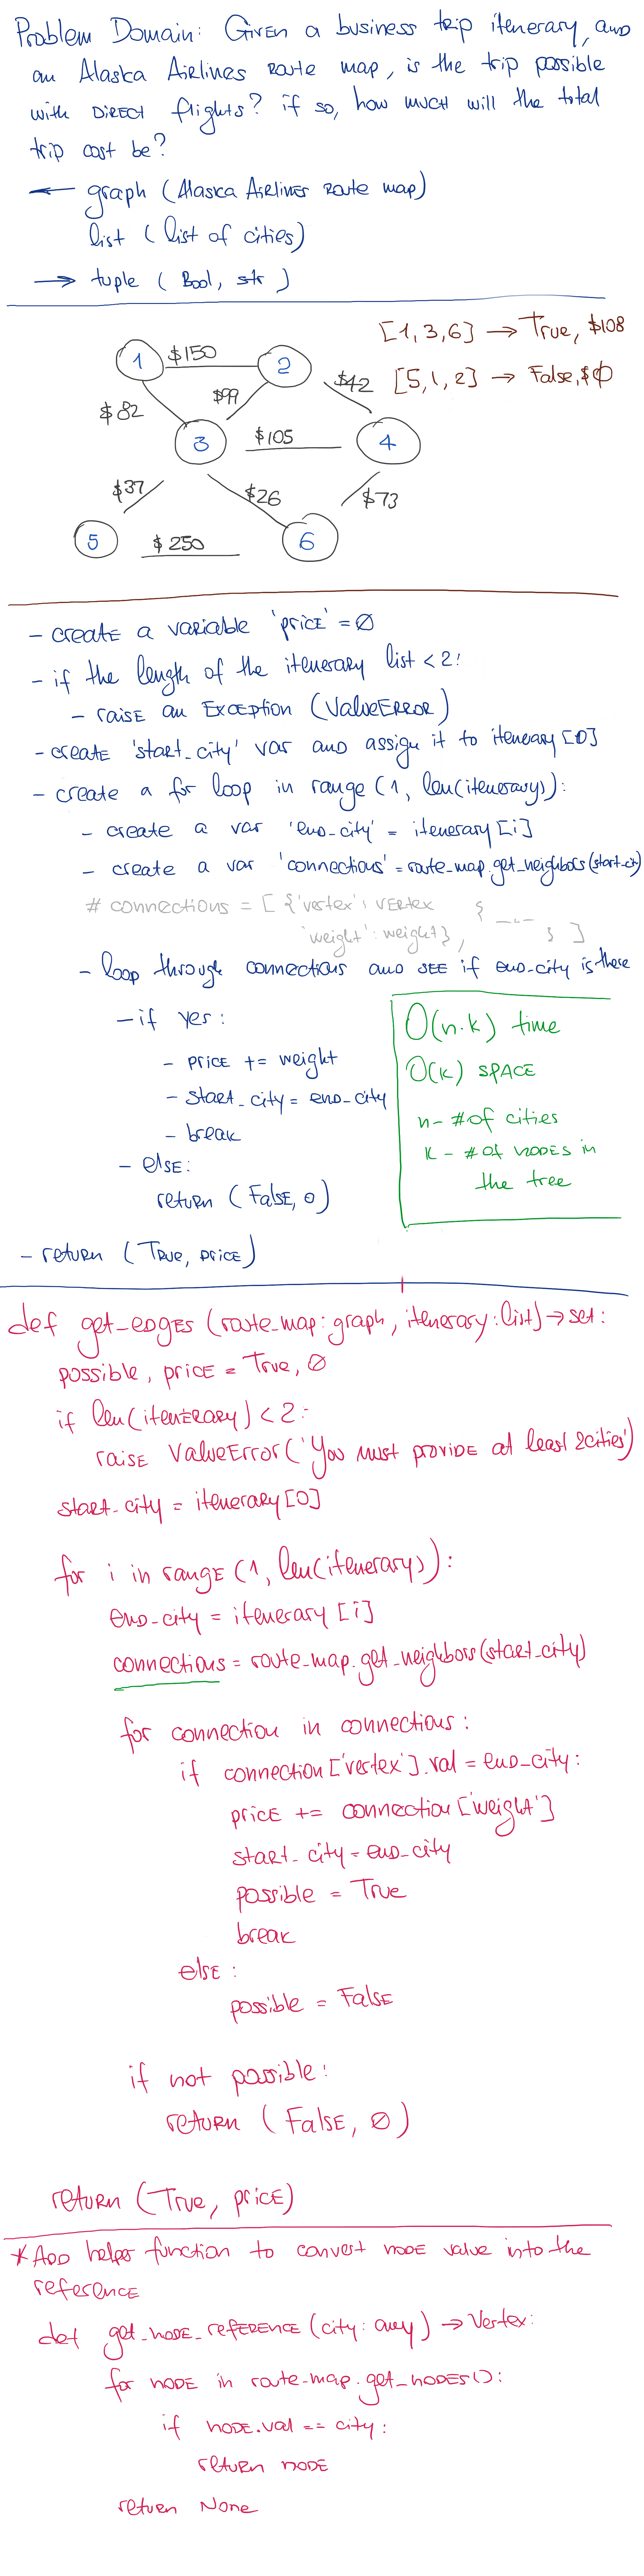 Problem Domain: Given a business trip itenerary, and
an Alaska Airlines route map, is the trip possible
with DIRECT flights? if so, how much will the total
trip cost be?
← graph (Alaska Airlines route map)
list (list of cities)
→ tuple (Bool, str)
[1,3,6] → True, $108
1 $150 2
$42 [5,1,2] → False, $0
$82 $99
3 $105 4
$37 $26 $73
5 $250 6
- create a variable 'price' = 0
- if the length of the itenerary list < 2:
- raise an Exception (ValueError)
- create 'start_city' var and assign it to itenerary[0]
- create a for loop in range (1, len(itenerary)):
- create a var 'end-city' = itenerary[i]
- create a var 'connections' = route_map.get_neighbors(start_cit)
# connections = [{'vertex': vertex { _ _ _
'weight': weight}, } ]
- loop through connections and see if end-city is there
- if yes:
- price += weight
- start_city = end-city
- break
- else:
return (False, 0)
O(n·k) time
O(k) space
n - # of cities
k - # of nodes in
the tree
- return (True, price)
def get_edges (route_map: graph, itenerary: list) → set:
possible, price = True, 0
if len(itenerary) < 2:
raise ValueError('You must provide at least 2 cities')
start_city = itenerary[0]
for i in range (1, len(itenerary)):
end-city = itenerary[i]
connections = route_map.get_neighbors(start_city)
for connection in connections:
if connection['vertex'].val = end-city:
price += connection['weight']
start_city = end-city
possible = True
break
else:
possible = False
if not possible:
return (False, 0)
return (True, price)
* Add helper function to convert node value into the
reference
def get_node_reference (city: any) → Vertex:
for node in route-map.get_nodes():
if node.val == city:
return node
return None